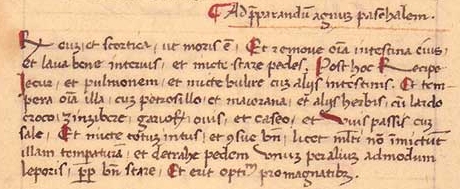 Ad p̱parandum agnum paschalem.
Rx eum, et scortica, ut moris ē. Et remove oīa intestina eius,
et lava bene interius, et micte stare pedes. Post hoc Recipe
Iecur, et pulmonem, et micte bulire cum alijs intestinis. Et tem-
pera oīa illa, cum petrosillo et maiorana, et alijs herbis, cum lardo
croco, zinzibere, garioff. ovis, et caseo, et Uvis passis cum
sale. Et micte totum intus, et 9sue bn̄, licet mlti nō imictūt
illam temperaturā, et detrahe pedem unum per alium admodum
leporis, bn̄ stare, Et erit optim pro magnatibus.